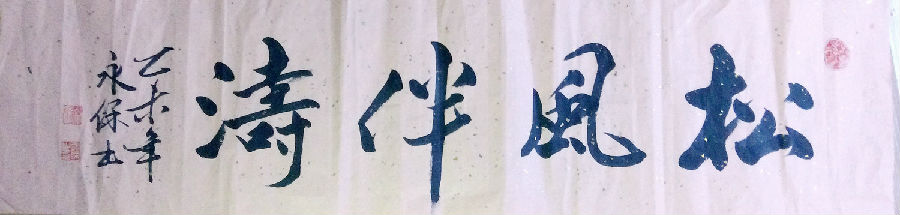 松風伴濤
乙未年
永保书